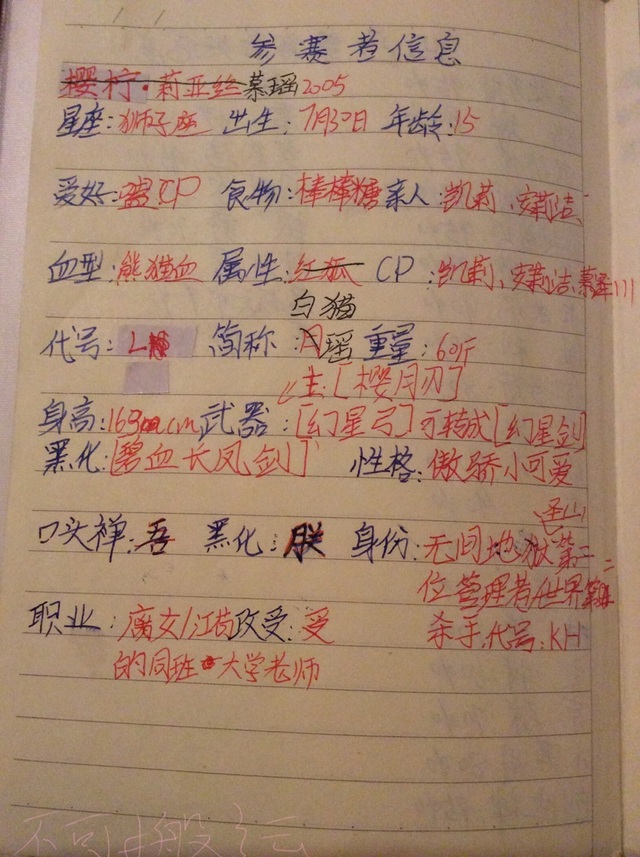 参赛者信息
樱柠·莉亚丝慕瑶2005
星座:狮子座 出生:7月30日 年龄:15
爱好:嗑CP 食物:棒棒糖 亲人:凯莉、安莉洁
血型:熊猫血 属性:红狐 CP:凯莉、安莉洁、慕瑶
白猫
代号:L 简称:月瑶 重量:60斤
主:[樱月刃]
身高:169cm 武器:[幻星弓]可转成[幻星剑]
黑化:[碧血长凤剑] 性格:傲骄小可爱
圣山
口头禅:吾 黑化:朕 身份:无间地狱第二
位管理者/世界第
职业:腐女/ 攻受:受 杀手,代号:KH
的同班 大学老师